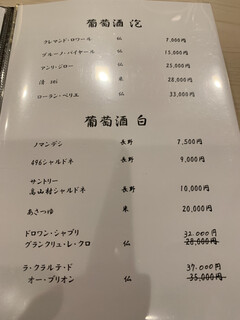 葡萄酒 泡
クレマンド・ロワール 仏 7,500円
ブルーノ・パイヤール 仏 15,000円
アンリ・ジロー 仏 25,000円
米 28,000円
ローラン・ペリエ 仏 33,000円
葡萄酒 白
ノマンデシ 長野 7,500円
496シャルドネ 長野 9,000円
サントリー
高山村シャルドネ 長野 10,000円
あさつゆ 米 20,000円
ドロワン・シャブリ 32.000円
グランクリュ・レ・クロ 仏 28,000円
ラ・クラルテ・ド 37.000円
オー・ブリオン 仏 35,000円